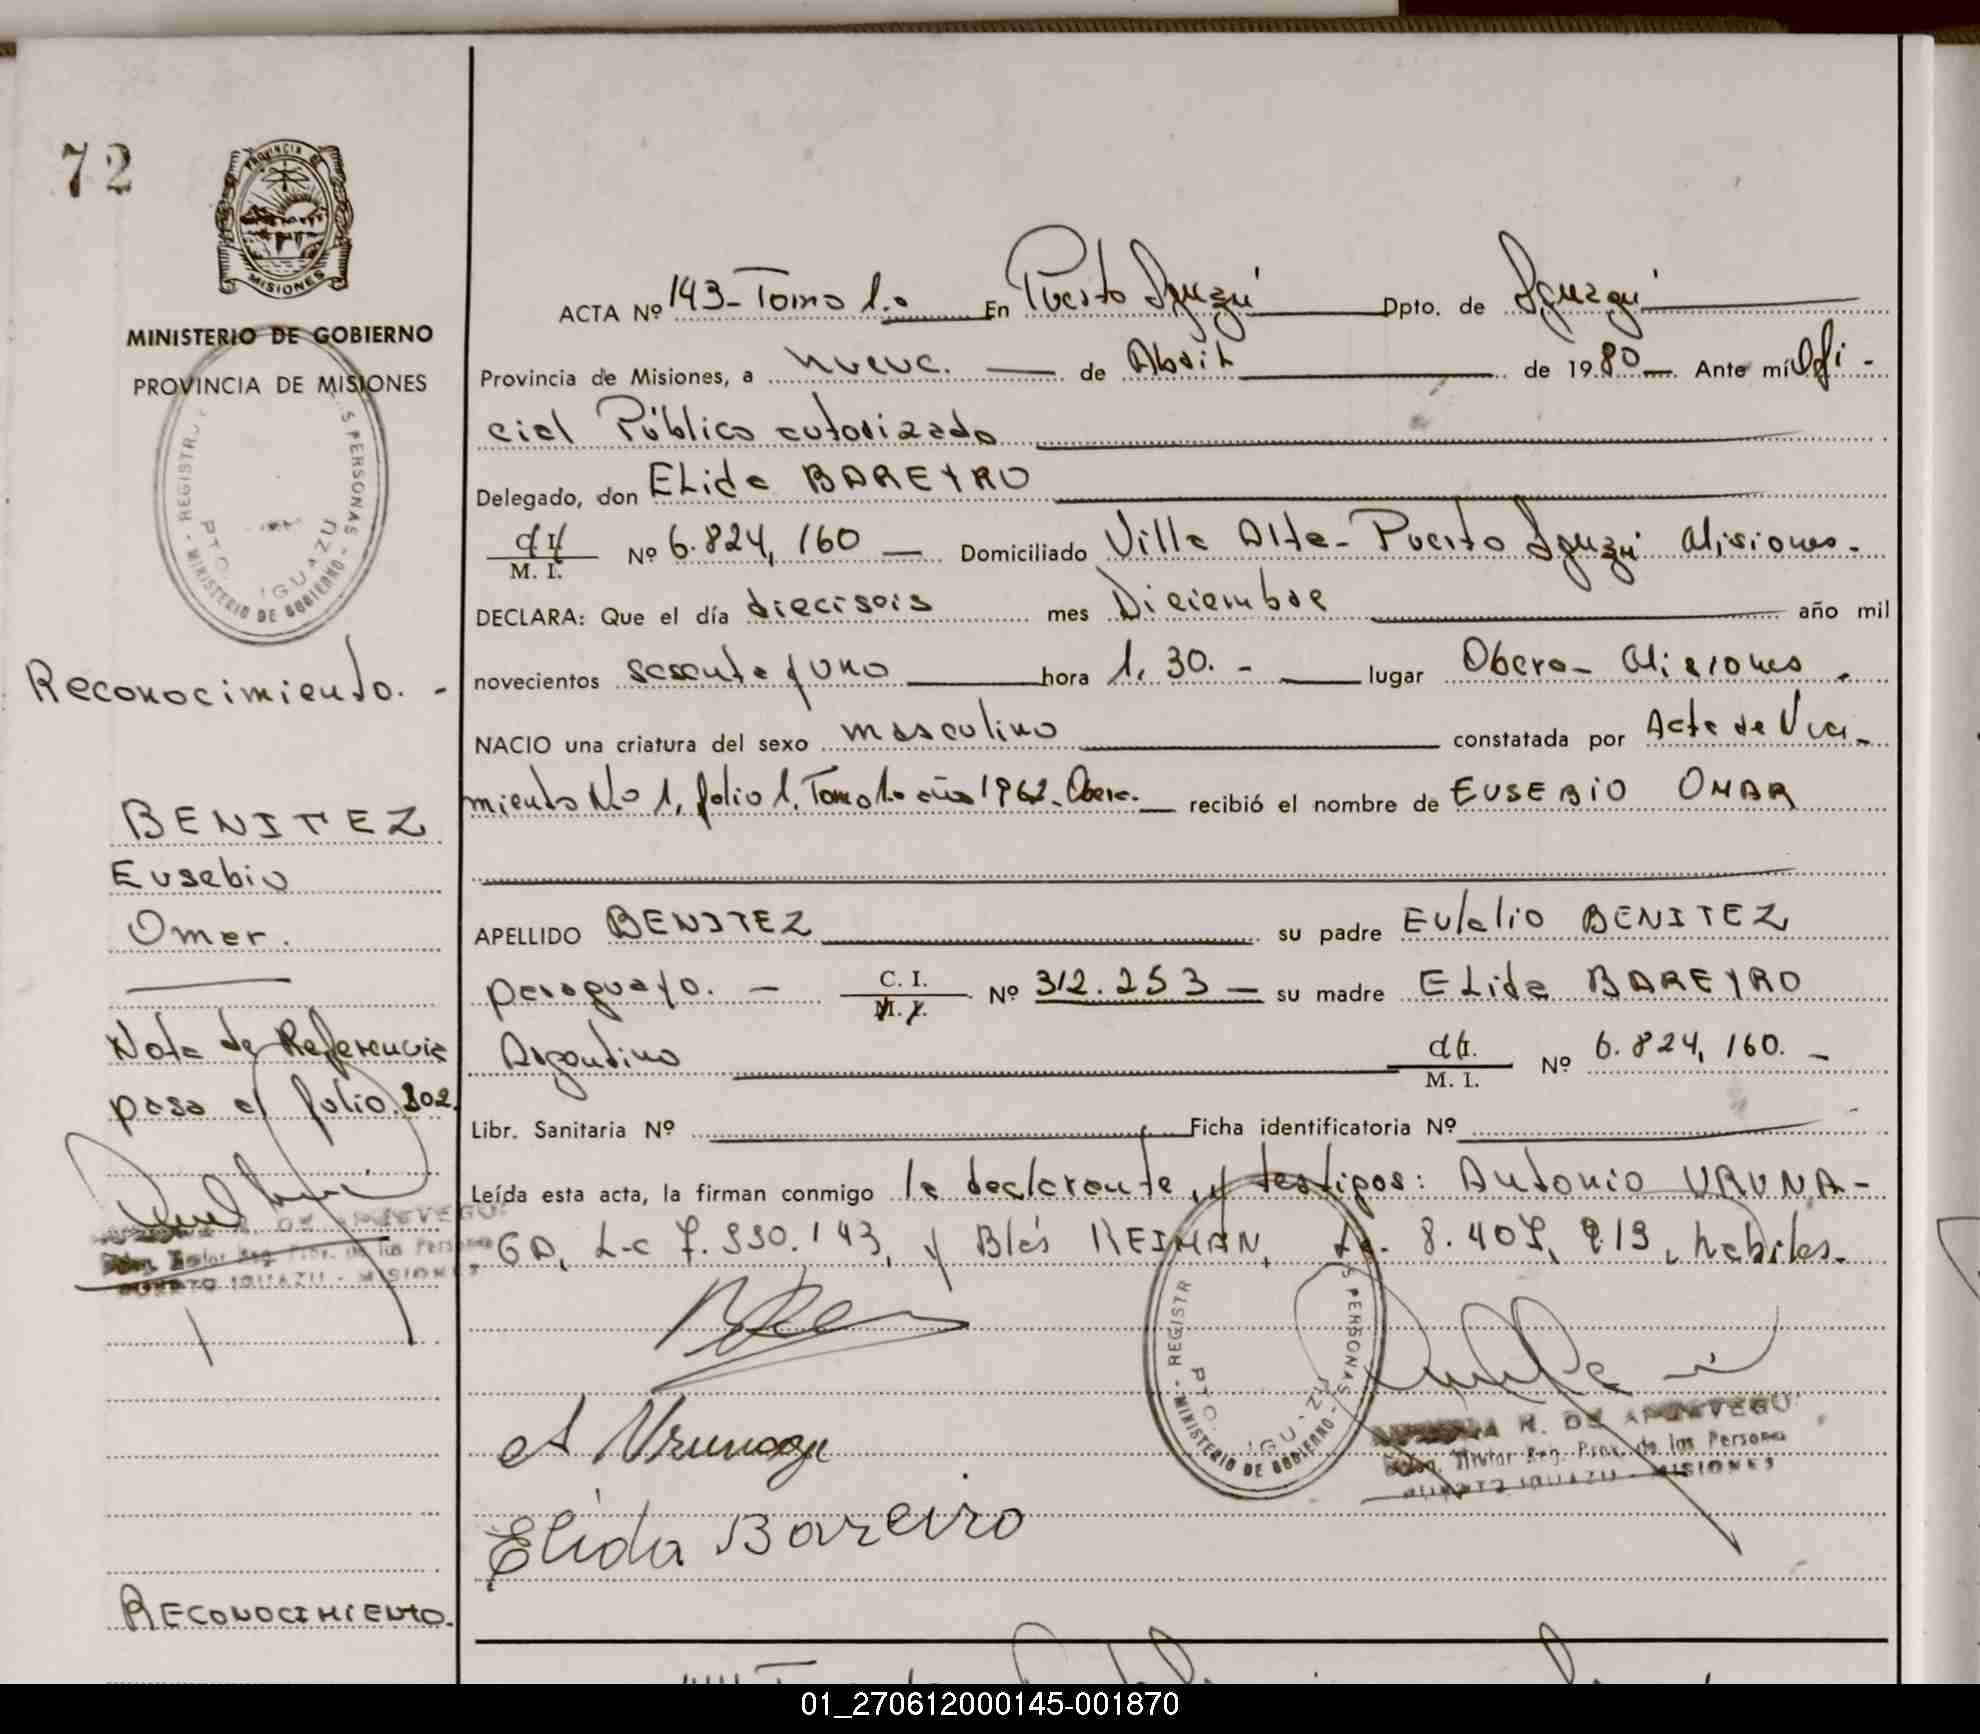 72
PROVINCIA DE
MISIONES
MINISTERIO DE GOBIERNO
PROVINCIA DE MISIONES
REGISTR S PERSONAS
PTO. IGUAZU
- MINISTERIO DE GOBIERNO -
Reconocimiento. -
BENITEZ
Eusebio
Omar.
Nota de Referencia
pasa al folio 302.
ACTA Nº 143 - Tomo 1.o En Puerto Iguazú Dpto. de Iguazú
Provincia de Misiones, a nueve. de Abril de 1980. Ante mí Ofi-
cial Público autorizado
Delegado, don ELida BAREYRO
M. I. Nº 6.824,160 Domiciliado Villa Alta - Puerto Iguazú Misiones.
DECLARA: Que el día dieciseis mes Diciembre año mil
novecientos sesenta y uno hora 1,30. - lugar Obera - Misiones.
NACIO una criatura del sexo masculino constatada por Acta de Naci-
miento No 1, folio 1, Tomo 1.o año 1962. Obera. recibió el nombre de EUSEBIO OMAR
APELLIDO BENITEZ su padre Eulalio BENITEZ
paraguayo. - C. I. M. I. Nº 312.253 su madre ELida BAREYRO
Argentino M. I. Nº 6.824,160. -
Libr. Sanitaria Nº Ficha identificatoria Nº
Leída esta acta, la firman conmigo la declarante, y testigos: Antonio URUNA-
GA, L.e 7.530.143, y Blás REIMAN, 8.407,219, habiles.
A Urunaga
Elida Bareiro
REGISTR S PERSONAS
PTO. IGUAZU
- MINISTERIO DE GOBIERNO -
N. DE
Titular Reg. Prov. de las Persona
PUERTO IGUAZU - MISIONES
RECONOCIMIENTO.
01_270612000145-001870